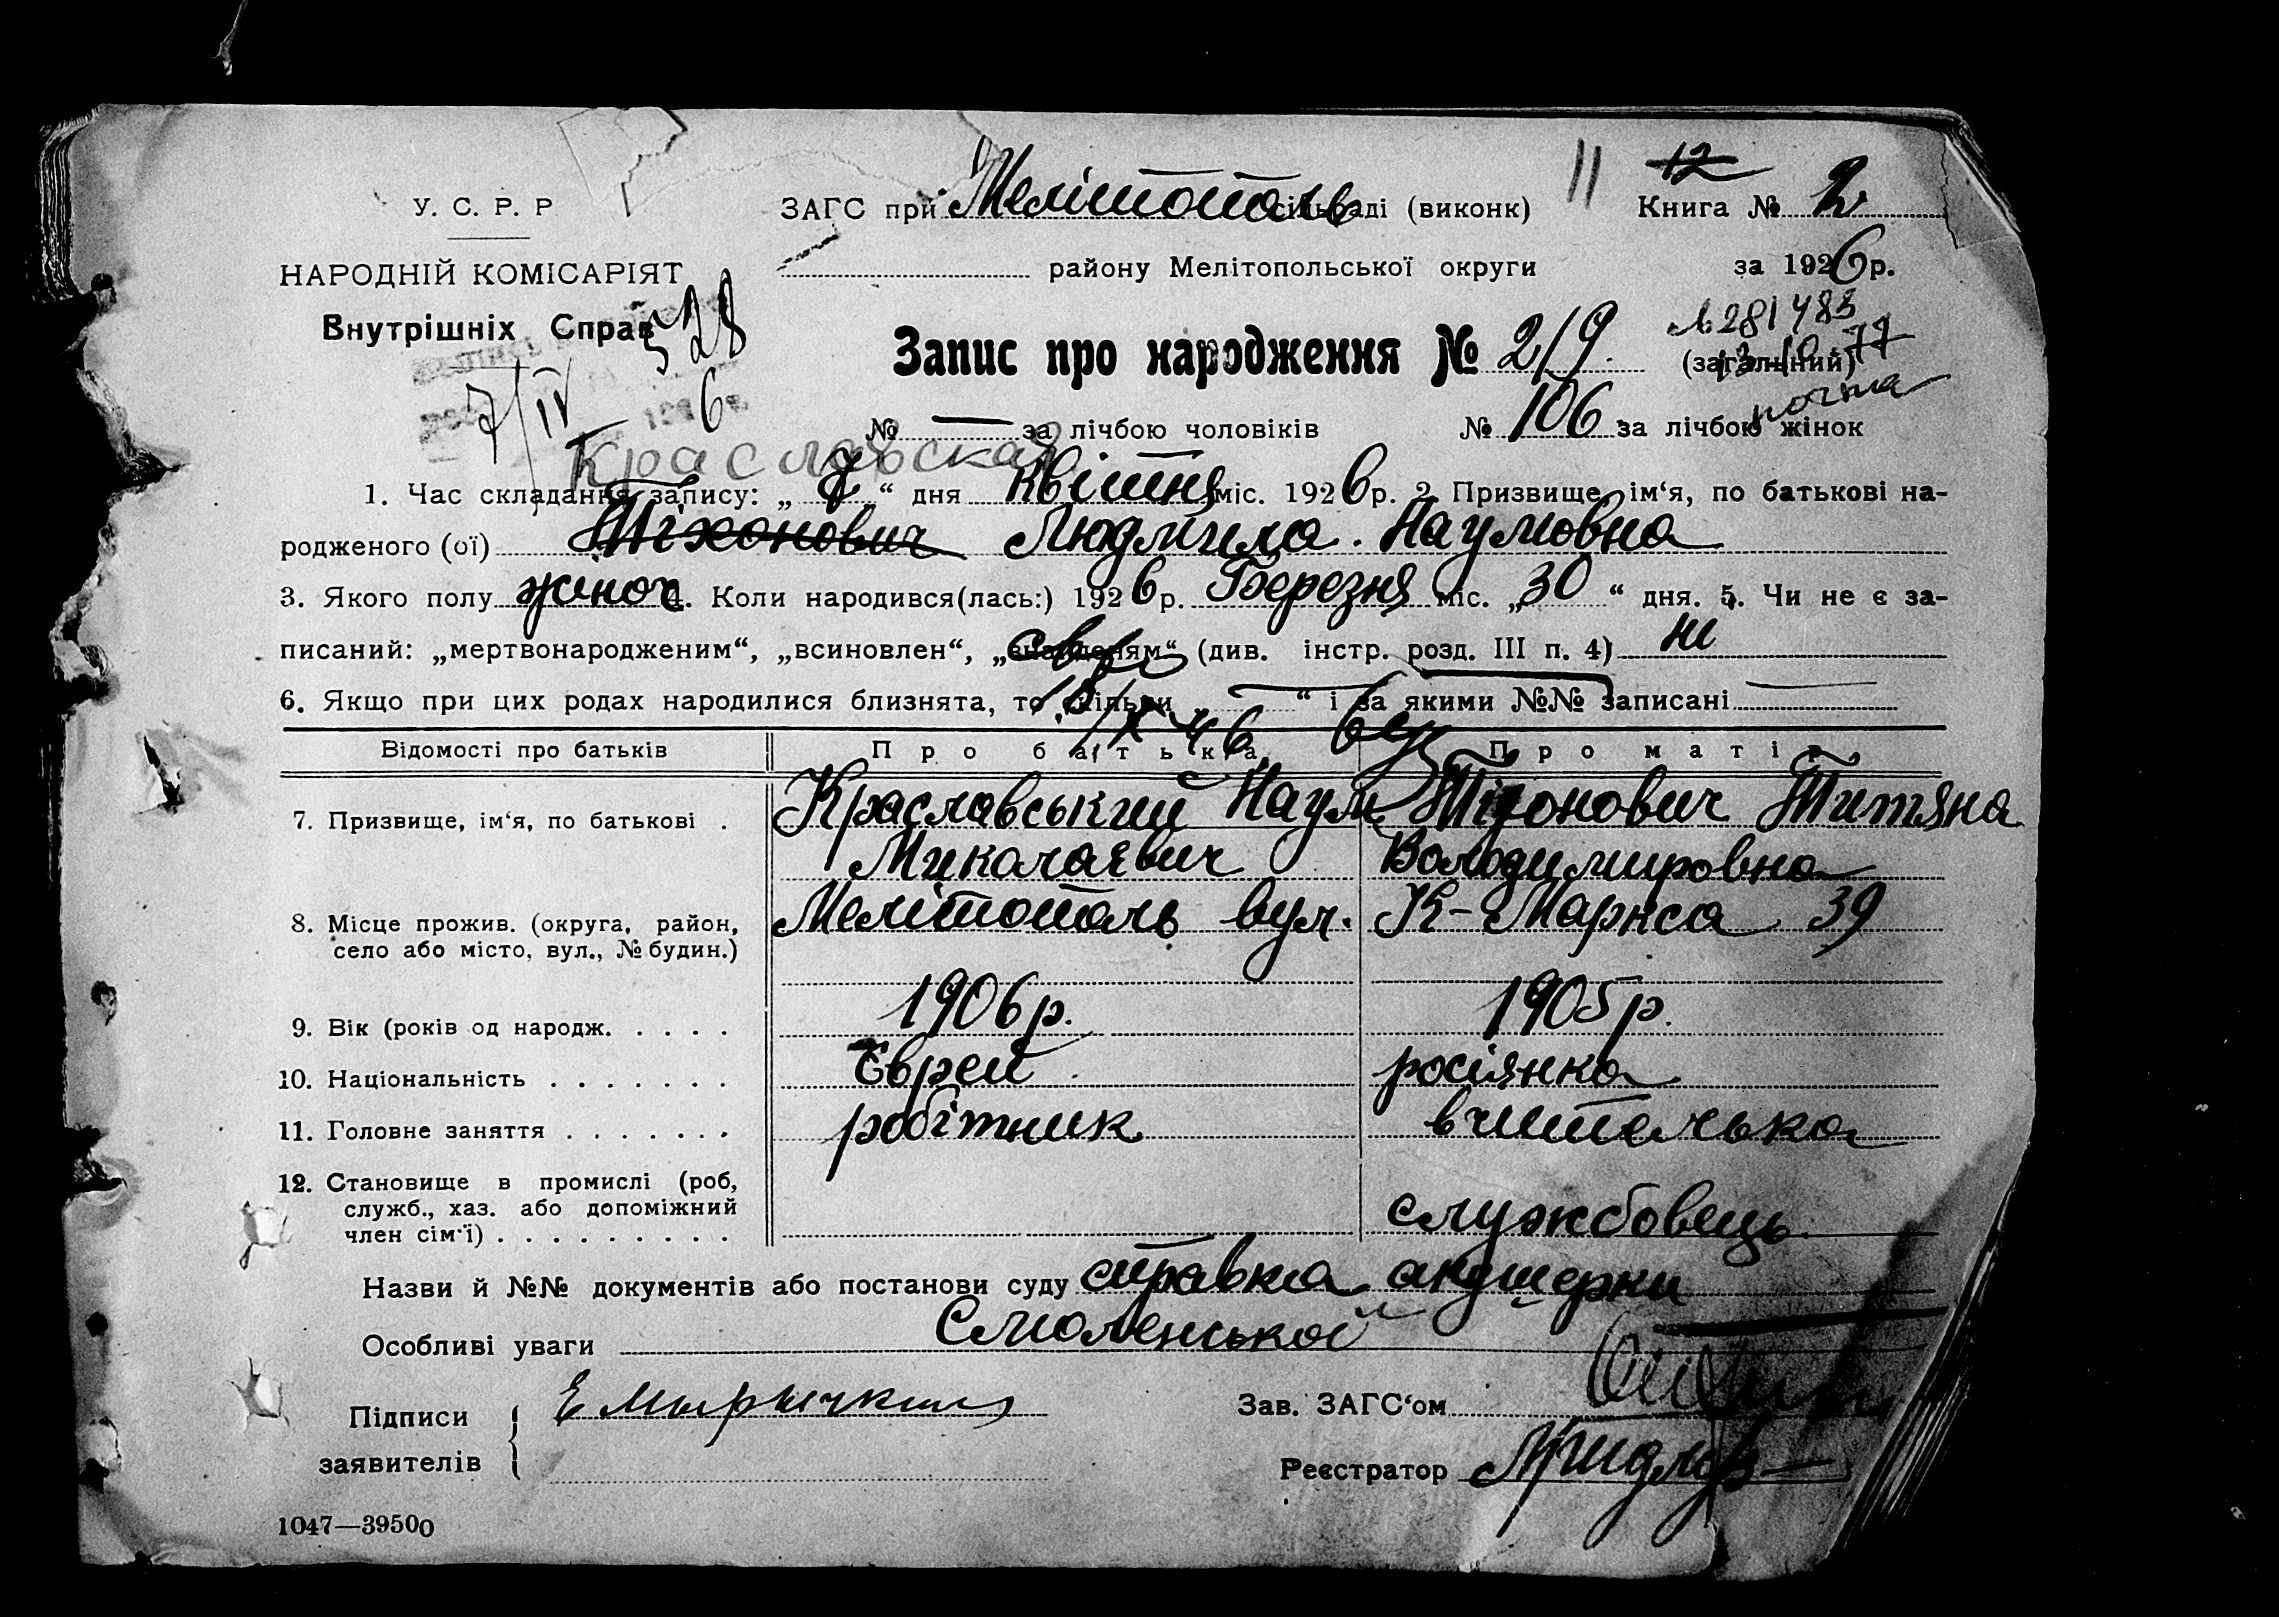 11 12
У. С. Р. Р ЗАГС при Мелітополь сільраді (виконк) Книга № 2
НАРОДНІЙ КОМІСАРІЯТ району Мелітопольської округи за 1926 р.
Внутрішніх Справ 528 № 281483
Запис про народження № 219. (загальний)
7/IV 6 почта
№ — за лічбою чоловіків № 106 за лічбою жінок
Краславская
1. Час складання запису: „ 7 “ дня квітня міс. 1926 р. 2 Призвище, ім‘я, по батькові на-
родженого (ої) Тіхонович Людмила. Наумовна
3. Якого полу жіноч 4. Коли народився(лась:) 1926 р. Березня міс. „ 30 “ дня. 5. Чи не є за-
писаний: „мертвонародженим“, „всиновлен“, „знайденям“ (див. інстр. розд. III п. 4) ні
6. Якщо при цих родах народилися близнята, то скільки „ — “ і за якими №№ записані —
Відомості про батьків Про батька Про матір
7. Призвище, ім‘я, по батькові . Краславський Наум Тіхонович Титяна
Миколаєвич Володимировна
8. Місце прожив. (округа, район, Мелітополь вул. К-Маркса 39
село або місто, вул., № будин.)
9. Вік (років од народж. . . . . 1906 р. 1905 р.
10. Національність . . . . . . . Єврей росіянка
11. Головне заняття . . . . . . . робітник вчителька
12. Становище в промислі (роб,
служб., хаз. або допоміжний службовець
член сім‘ї) . . . . . . . . .
Назви й №№ документів або постанови суду справка акушерки
Особливі уваги Смоленської
Підписи Зав. ЗАГС‘ом
заявителів Реєстратор
1047—39500